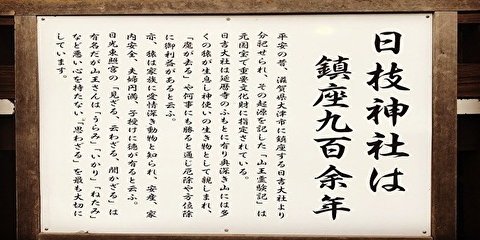 日枝神社は
鎮座九百余年
平安の昔、滋賀県大津市に鎮座する日吉大社より
分祀せられ、その起源を記した「山王霊験記」は
元国宝で重要文化財に指定されている。
日吉大社は延暦寺のふもとに有り奥深き山には多
くの猿が生息し神使いの生き物として親しまれ、
「魔が去る」や何事にも勝ると通じ厄除や方位除
に御利益があると云ふ。
亦、猿は家族に愛情深き動物と知られ、安産、家
内安全、夫婦円満、子授けに徳が有ると云ふ。
日光東照宮の「見ざる、云わざる、聞かざる」は
有名だが山王さんは「うらみ」「いかり」「ねたみ」
など悪い心を持たない「思わざる」を最も大切に
しています。